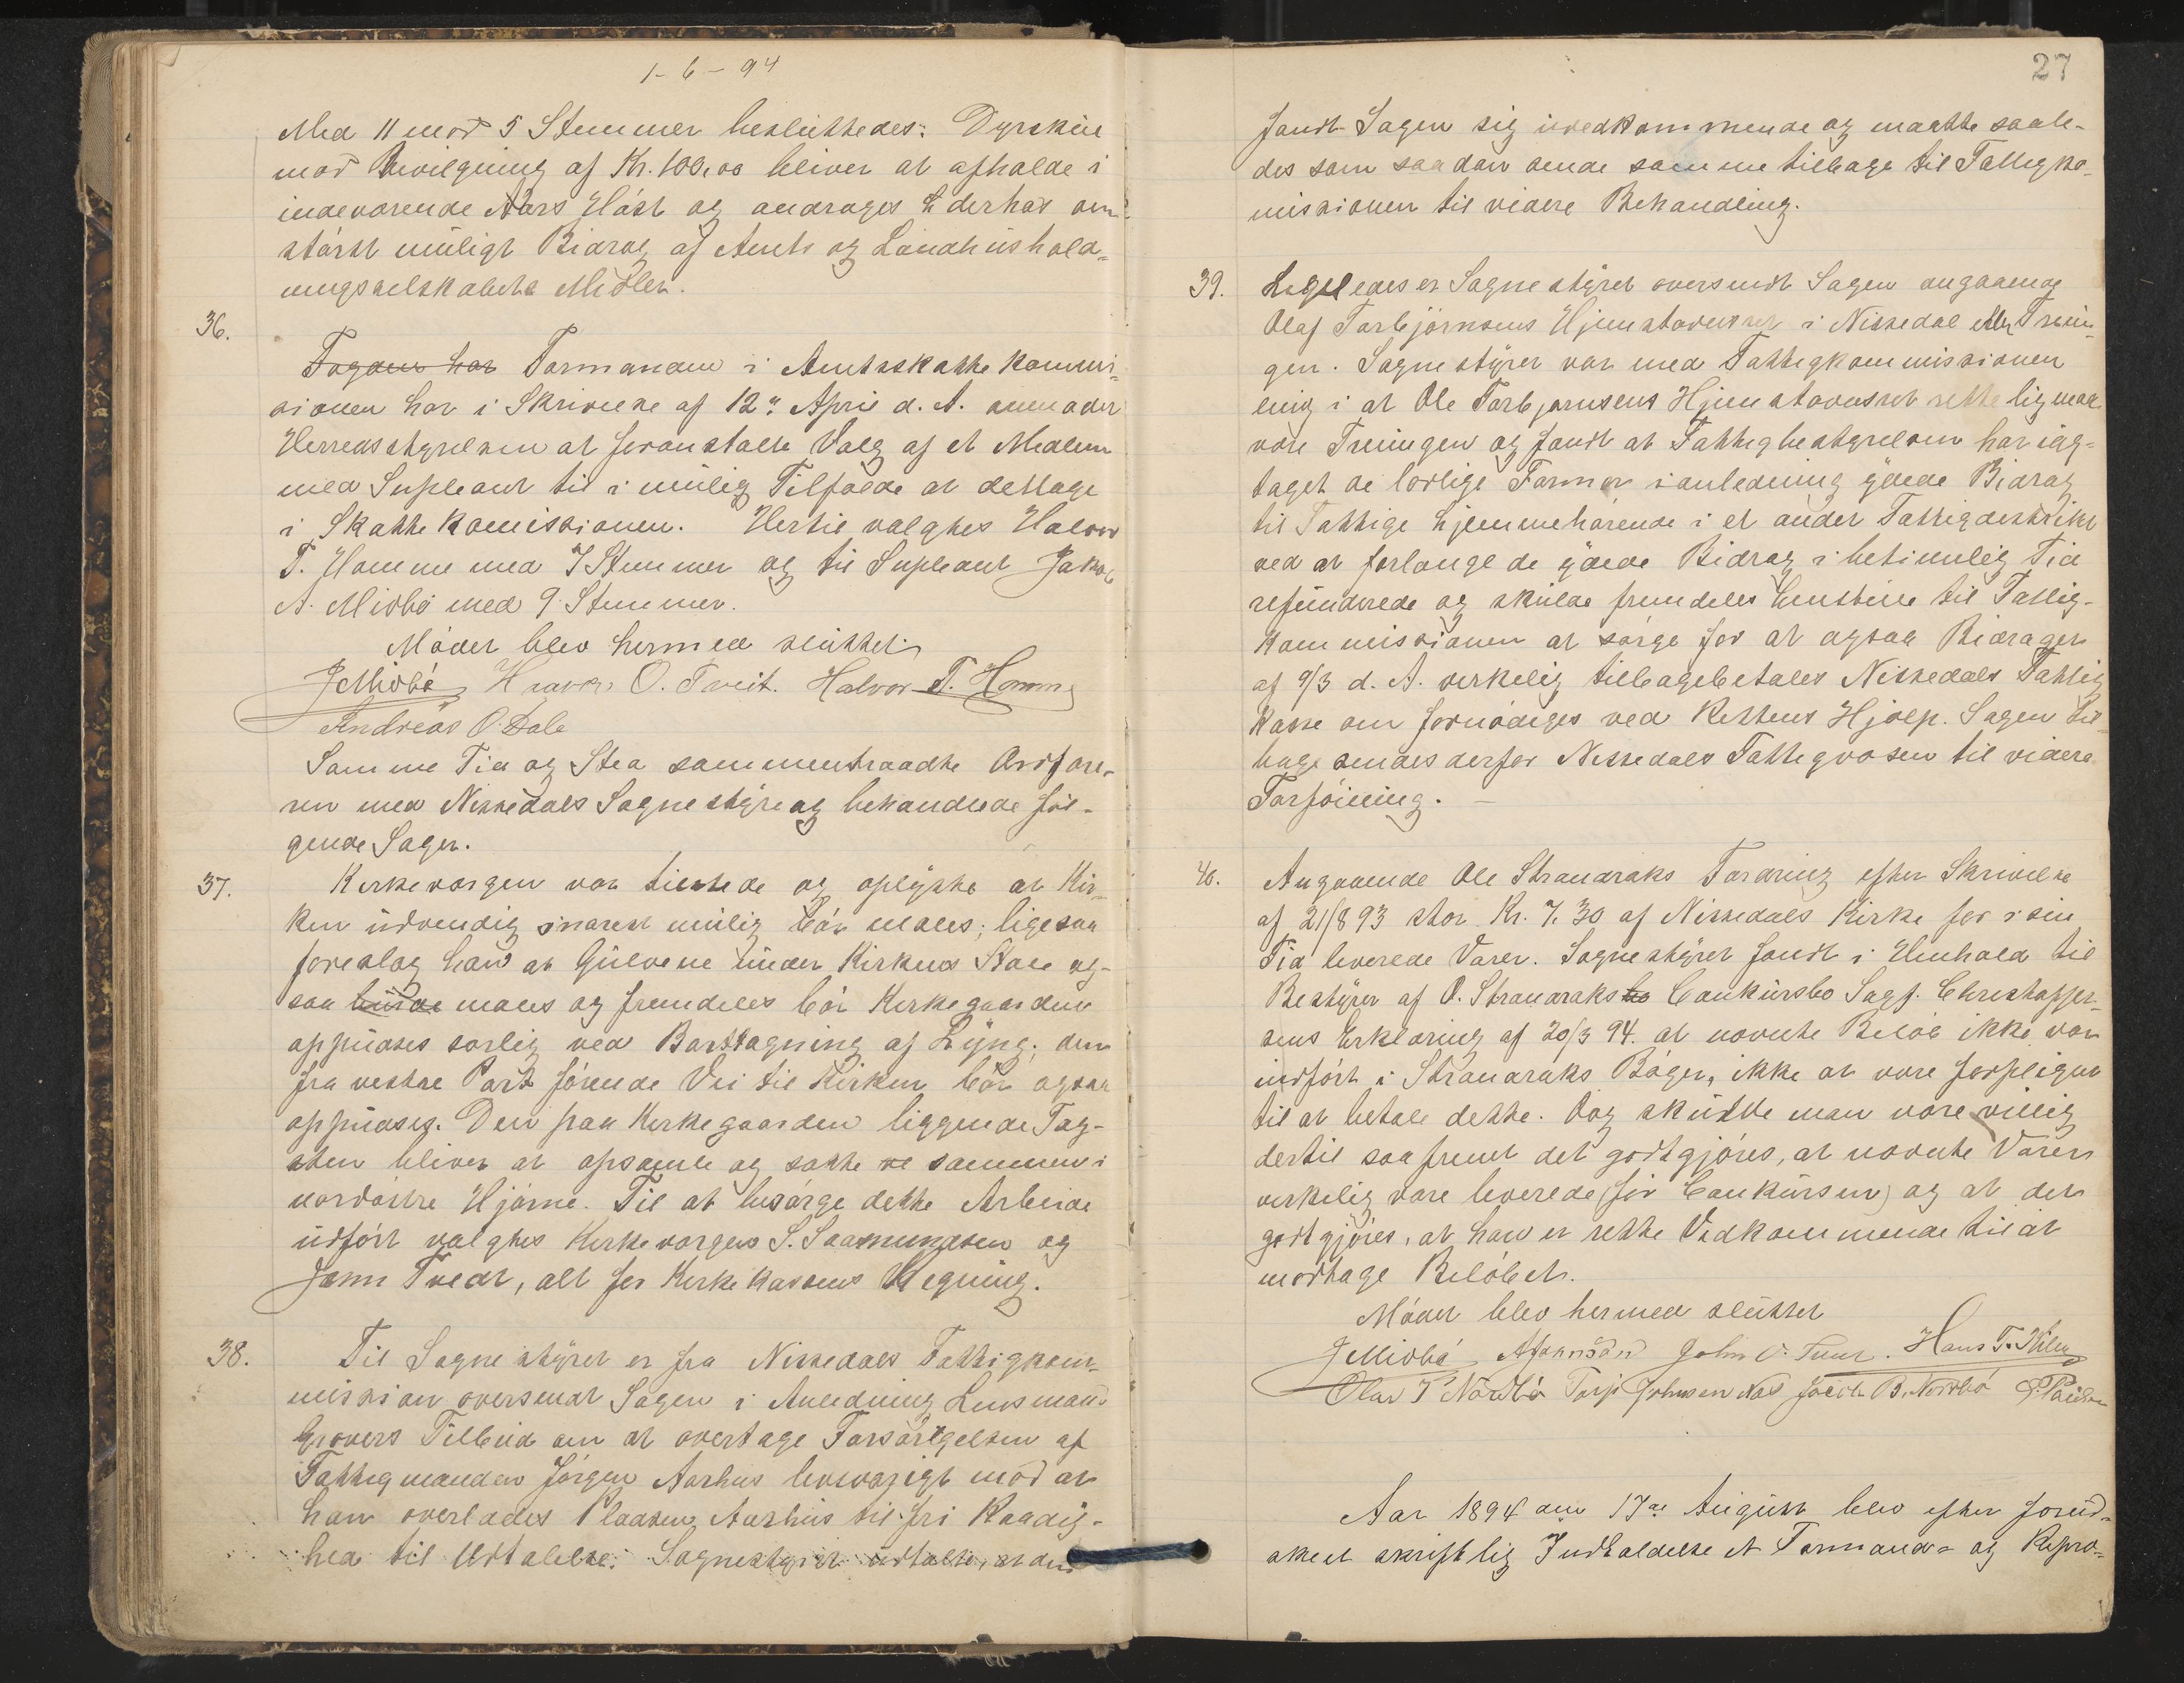 1-6-94
Med 11 mod 5 Stemmer besluttedes: Dyrskue
mod Bevilgning af Kr. 100,00 bliver at afholde i
indeværende Aars Høst og andrages derhos om
størst muligt Bidrag af Amts og Landhushold-
ningsselskabets Midler.
36.
Fogden har Formanden i Amtsskattekommi-
sionen har i Skrivelse af 12te April d. A. anmodet
Herredsstyrelsen at foranstalte Valg af et Medlem
med Supleant til i mulig Tilfælde at deltage
i Skattekomissionen. Hertil valgtes Halvor
T. Homme med 7 Stemmer og til Supleant Jakob
A. Midbø med 9 Stemmer.
Mødet blev hermed sluttet
J Midbø Hraver O. Tveit. Halvor T. Homme
Andreas O. Dale
Samme Tid og Sted sammentraadte Ordføre-
ren med Nissedals Sognestyre og behandlede føl-
gende Sager.
37.
Kirkevargen var tilstede og oplyste at Kir-
ken udvendig snarest mulig bør males; ligesaa
foreslog han at Gulvene under Kirkens Stole og-
saa burde males og fremdeles bør Kirkegaarden
oppudses særlig ved Borttagning af Lyng; den
fra vestre Port førende Vei til Kirken bør ogsaa
oppudses. Den paa Kirkegaarden liggende Tag-
sten bliver at opsamle og sætte sammen i
nordøstre Hjørne. Til at besørge dette Arbeide
udført valgtes Kirkevargen S. Saamundsen og
Jann Tvedt, alt for Kirkekassens Regning.
38.
Til Sognestyret er fra Nissedals Fattigkom-
mission oversendt Sagen i Anledning Lensmand
Grovers Tilbud om at overtage Forsørgelsen af
Fattigmanden Jørgen Aarhus livsvarigt mod at
han overlades Pladsen Aarhus til fri Raadig-
hed til Udtalelse. Sognestyret udtalte, at den
27
fandt Sagen sig uvedkommende og maatte saale-
des som saadan sende samme tilbage til Fattigko-
missionen til videre Behandling.
39.
Ligeledes er Sognestyret oversendt Sagen angaaende
Olaf Torbjørnsens Hjemstavnsret i Nissedal eller Trein-
gen. Sognestyret var med Fattigkommissionen
enig i at Ole Torbjørnsens Hjemstavnsret rettelig maa
være Treungen og fandt at Fattigbestyrelsen har iag-
taget de lovlige Former i anledning ydede Bidrag
til Fattige hjemmehørende i et andet Fattigdestrikt
ved at forlange de ydede Bidrag i betimelig Tid
refunderede og skulde fremdeles henstille til Fattig-
kommissionen at sørge for at ogsaa Bidraget
af 9/3 d. A. verkelig tilbagebetales Nissedals Fattig
kasse om fornødiges ved Rettens Hjælp. Sagen til-
bagesendes derfor Nissedals Fattigvæsen til videre
Forføining.
40.
Angaaende Ole Strandraks Fordring efter Skrivelse
af 21/8 93 stor Kr. 7,30 af Nissedals Kirke for i sin
Tid leverede Varer. Sognestyret fandt i Henhold til
Bestyrer af O. Strandraks bo Conkursbo Sagf. Christoffer-
sens Erklæring af 20/3 94. at nævnte Beløb ikke var
indført i Strandraks Bøger, ikke at være forpligtet
til at betale dette. Dog skulde man være villig
dertil saafremt det godtgjøres, at nævnte Varer
verkelig vare leverede (før Conkursen) og at det
godtgjøres, at han er rette Vedkommende til at
modtage Beløbet.
Mødet blev hermed sluttet
J Midbø John O. Tunr. Hans T.
Olav T Nordbø Torje Johnsen Næs Jacob B. Nordbø
Aar 1894 den 17de August blev efter forud-
skeet skriftlig Indkaldelse et Formands- og Repræ-